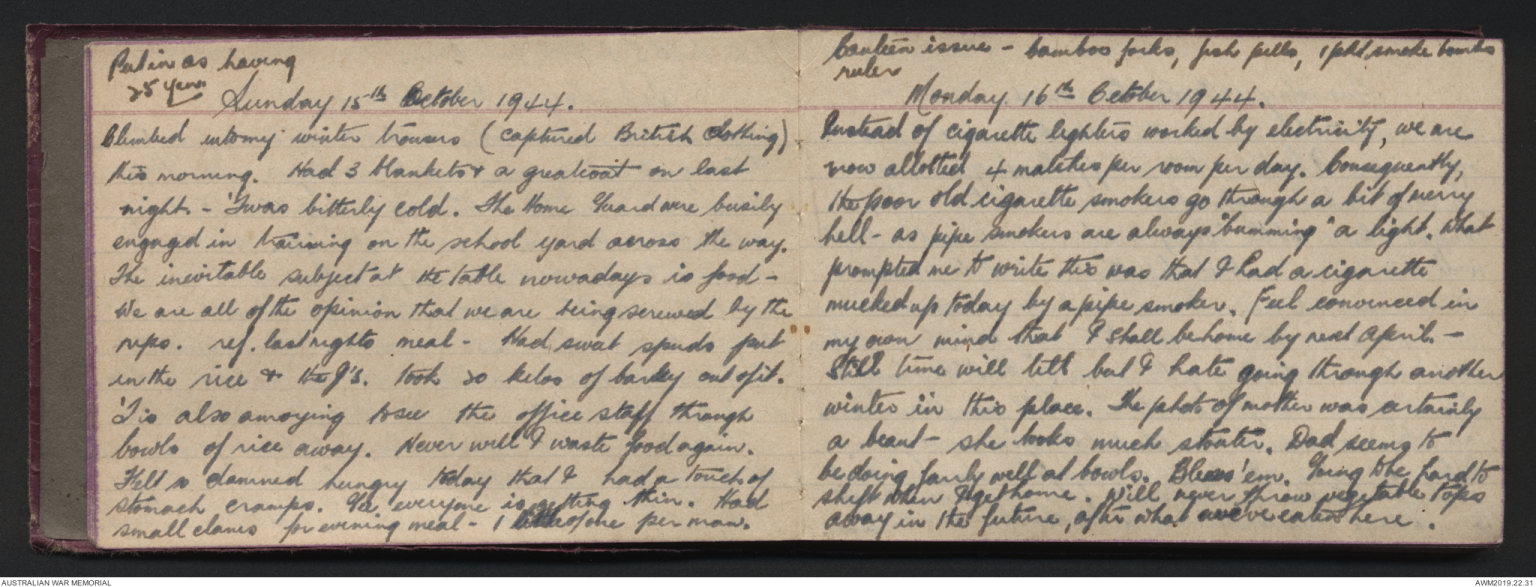 Put in as having
25 years
Sunday 15th October 1944.
Climbed into my winter trousers (captured British clothing)
this morning. Had 3 blankets & a greatcoat on last
night - 'Twas bitterly cold. The Home Guard were busily
engaged in training on the school yard across the way.
The inevitable subject at the table nowadays is food -
We are all of the opinion that we are being screwed by the
nips. ref. last nights meal - Had sweat spuds put
in the rice & the J's. took 20 kelos of barley out of it.
'Tis also annoying to see the office staff through
bowls of rice away. Never will I waste food again.
Felt so damned hungry today that I had a touch of
stomach cramps. Gee everyone is getting thin. Had
small clams for evening meal - 1 of one per man.
Canteen issue - bamboo forks, fish pills, 1 pkt smoke bombs
ruler
Monday 16th October 1944.
Instead of cigarette lighters worked by electricity, we are
now allotted 4 matches per room per day. Consequently,
the poor old cigarette smokers go through a bit of merry
hell - as pipe smokers are always "bumming" a light. What
prompted me to write this was that I had a cigarette
mucked up today by a pipe smoker. Feel convinced in
my own mind that I shall be home by next April. -
Still time will tell but I hate going through another
winter in this place. The photo of mother was certainly
a beaut - she looks much stouter. Dad seems to
be doing fairly well at bowls. Bless 'em. Going to be hard to
shift when I get home. Will never throw vegetable tops
away in the future, after what we've eaten here.
AUSTRALIAN WAR MEMORIAL
AWM2019.22.31